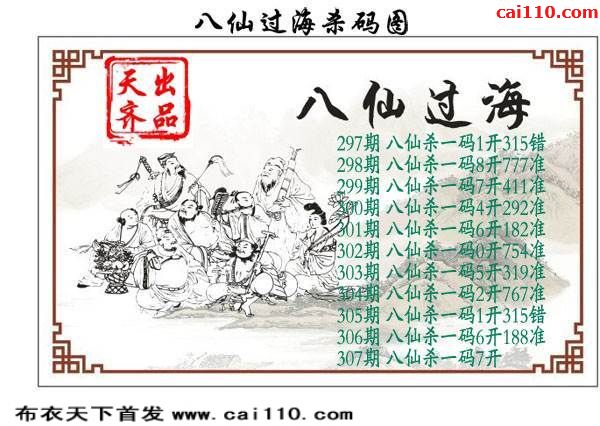 八仙过海杀码图
cai110.com
天出
齐品
八仙过海
297期 八仙杀一码1开315错
298期 八仙杀一码8开777准
299期 八仙杀一码7开411准
300期 八仙杀一码4开292准
301期 八仙杀一码6开182准
302期 八仙杀一码0开754准
303期 八仙杀一码5开319准
304期 八仙杀一码2开767准
305期 八仙杀一码1开315错
306期 八仙杀一码6开188准
307期 八仙杀一码7开
布衣天下首发 www.cai110.com